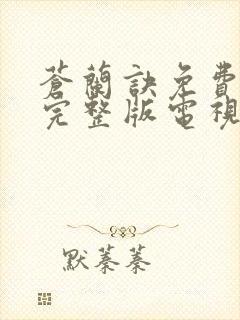 蒼蘭訣免費
完整版電視
默蓁蓁